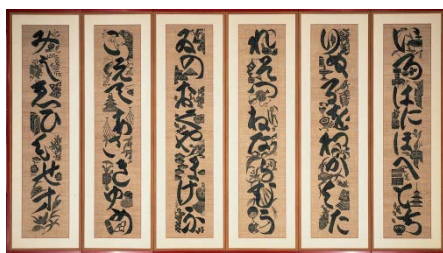 いろはにほへとち
りぬるをわかよた
れそつねならむう
ゐのおくやまけふ
こえてあさきゆめ
みしゑひもせす